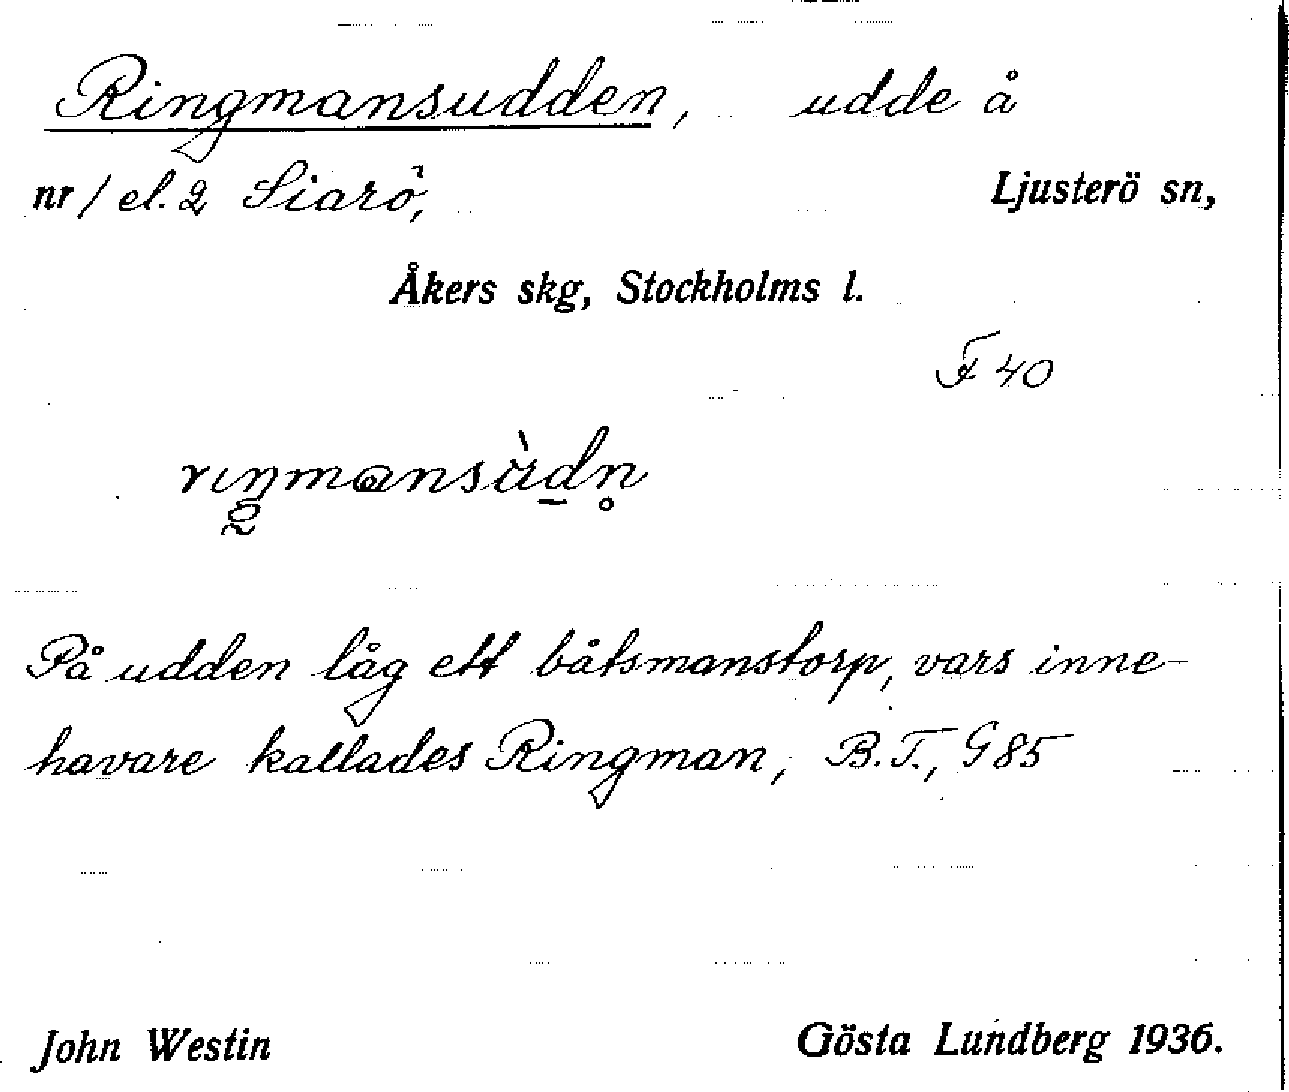 Ringmansudden, udde å
nr 1 el. 2 Siarö, Ljusterö sn,
Åkers skg, Stockholms l.
F 40
På udden låg ett båtsmanstorp, vars inne-
havare kallades Ringman, B.T., G 85
John Westin Gösta Lundberg 1936.